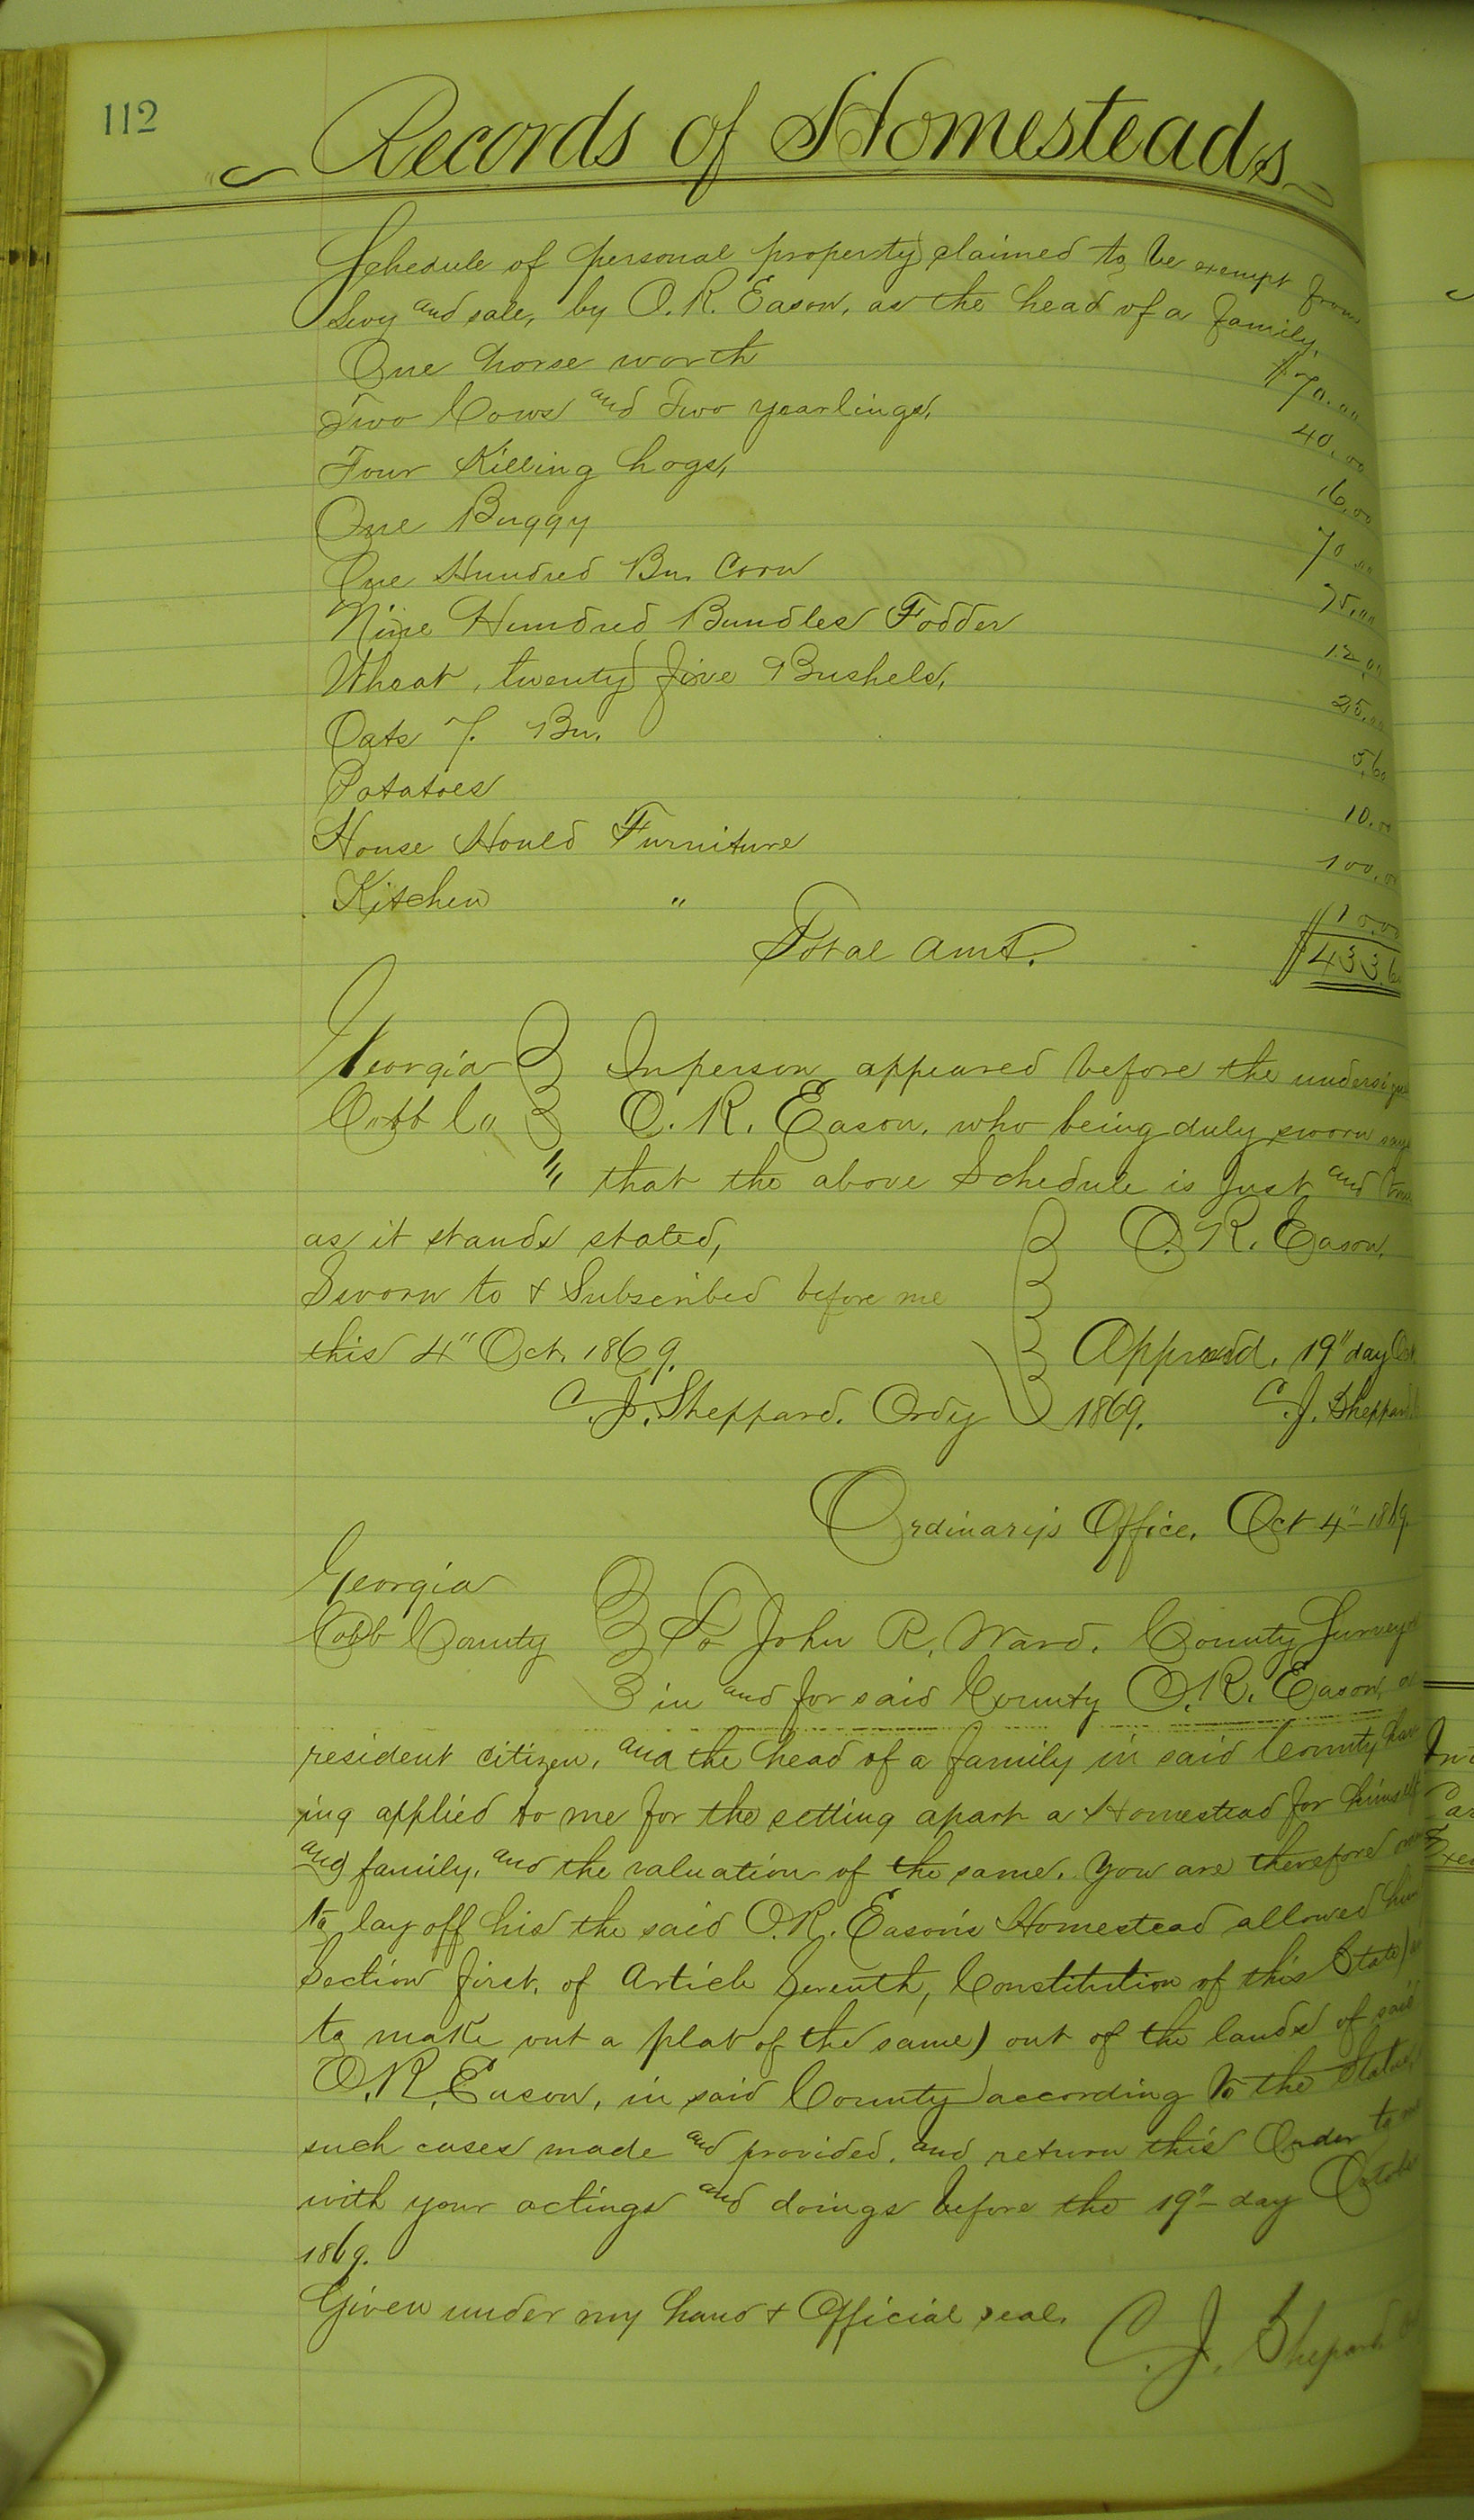 112
Records of Homesteads
Schedule of personal property claimed to be exempt from
Levy and sale, by O. R. Eason, as the head of a family.
One horse worth $70.00
Two Cows and Two yearlings, 40.00
Four Killing hogs, 16.00
One Buggy 70.00
One Hundred Bu. Corn 75.00
Nine Hundred Bundles Fodder 12.00
Wheat, twenty five Bushels, 25.00
Oats 7. Bu. 5.60
Potatoes 10.00
House Hould Furniture 100.00
Kitchen " 10.00
Total amt. $433.60
Georgia In person appeared before the undersigned
Cobb Co O. R. Eason, who being duly sworn says
that the above Schedule is just and true
as it stands stated, O. R. Eason,
Sworn to & Subscribed before me
this 4" Oct. 1869. Approved, 19" day Oct.
C. J. Sheppard. Ordy 1869. C. J. Sheppard
Ordinary's Office, Oct 4" 1869.
Georgia
Cobb County To John R. Ward. County Surveyor
in and for said County O. R. Eason, a
resident citizen, and the head of a family in said County hav
ing applied to me for the setting apart a Homestead for himself
and family, and the valuation of the same. You are therefore
to lay off his the said O. R. Eason's Homestead allowed him
Section first, of Article Seventh, Constitution of this State)
to make out a plat of the same) out of the lands of said
O. R. Eason, in said County according to the Statue,
such cases made and provided, and return this Order to me
with your actings and doings before the 19" day October
1869.
Given under my hand & Official seal.
C. J. Shepard